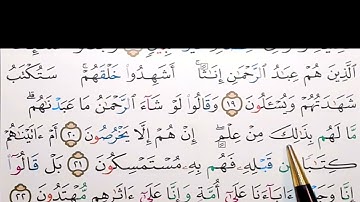 الَّذِينَ هُمْ عِبَادُ الرَّحْمَٰنِ إِنَاثًا ۚ أَشَهِدُوا خَلْقَهُمْ ۚ سَتُكْتَبُ
شَهَادَتُهُمْ وَيُسْأَلُونَ ١٩ وَقَالُوا لَوْ شَاءَ الرَّحْمَٰنُ مَا عَبَدْنَاهُمْ ۗ
مَا لَهُمْ بِذَٰلِكَ مِنْ عِلْمٍ ۖ إِنْ هُمْ إِلَّا يَخْرُصُونَ ٢٠ أَمْ آتَيْنَاهُمْ
كِتَابًا مِنْ قَبْلِهِ فَهُمْ بِهِ مُسْتَمْسِكُونَ ٢١ بَلْ قَالُوا
إِنَّا وَجَدْنَا آبَاءَنَا عَلَىٰ أُمَّةٍ وَإِنَّا عَلَىٰ آثَارِهِمْ مُهْتَدُونَ ٢٢